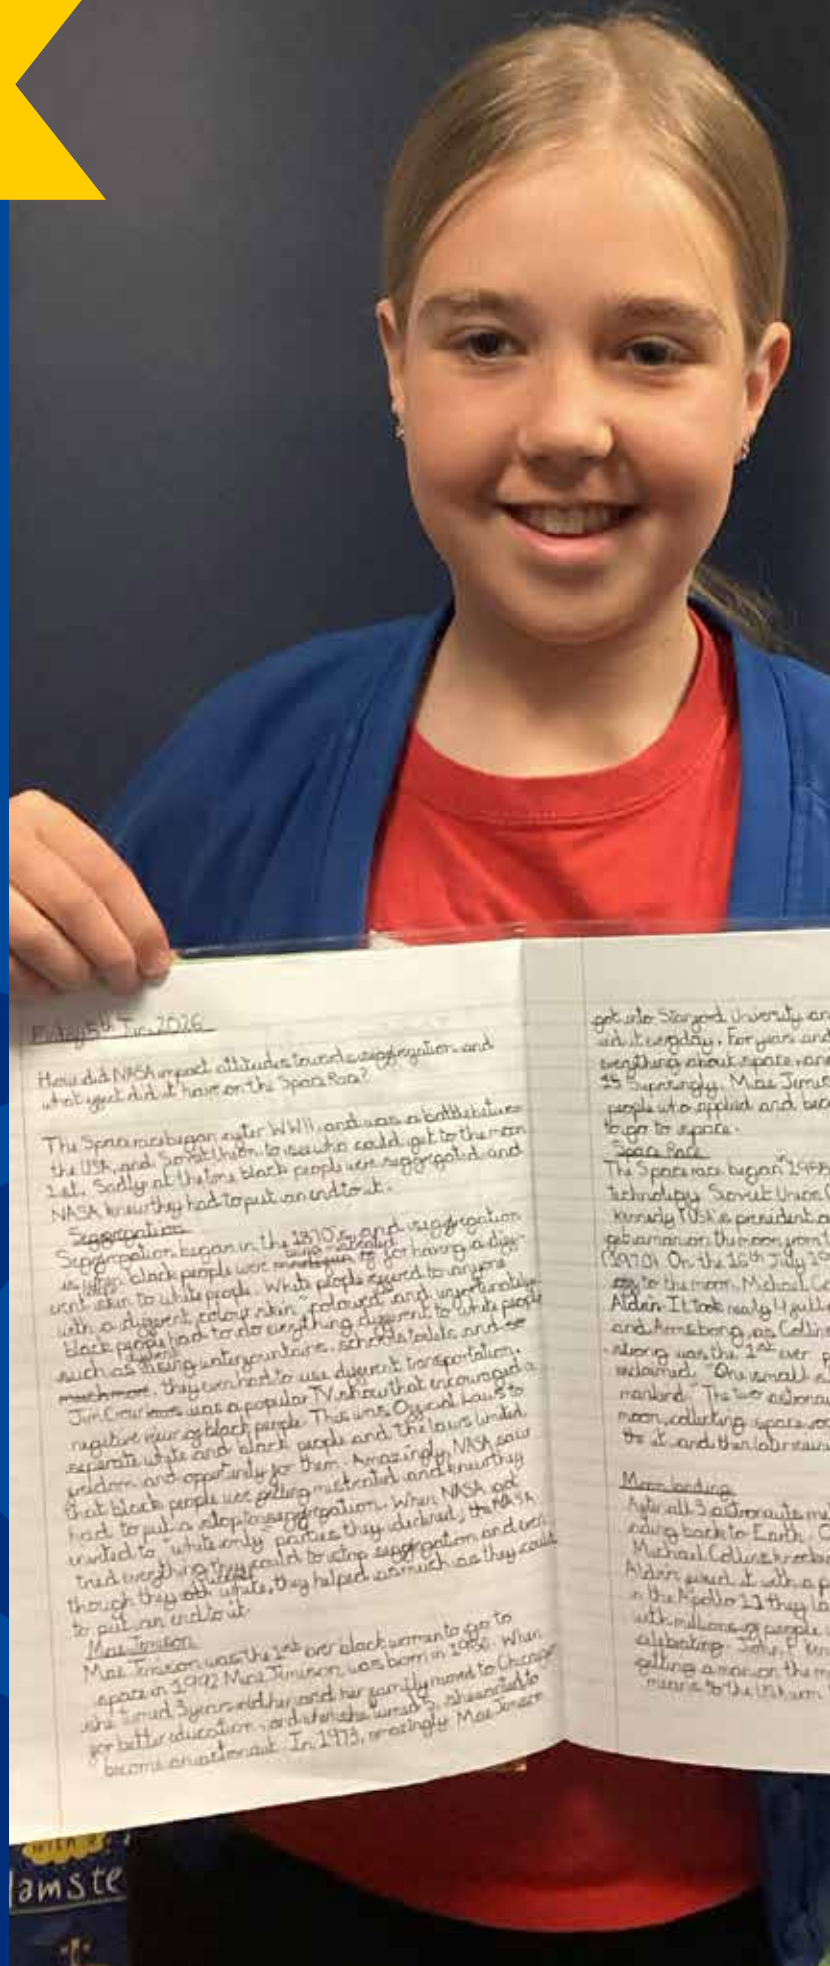 Friday 5th Jun 2026
How did NASA impact attitudes towards seggregation and
what effect did it have on the Space Race?
The Space race began after WWII, and was a battle between
the USA, and Soviet Union, to see who could get to the moon
1st. Sadly at the time black people were seggregated and
NASA knew they had to put an end to it.
Seggregation
Seggregation began in the 1870's, and seggregation
is when black people were treated for having a diff-
erent skin to white people. White people referred to anyone
with a different colour skin "coloured" and unfortunately
black people had to do everything different to white people
such as using different water fountains, schools toilets and
much more, they even had to use different transportation.
Jim Crow was a popular TV show that encouraged a
negative view of black people. This was Official Laws to
seperate white and black people and the laws limited
freedom and opportunity for them. Amazingly, NASA saw
that black people were getting mistreated and knew they
had to put a stop to seggregation. When NASA got
invited to "white only" parties they declined, the NASA
tried everything they could to stop seggregation and even
though they white, they helped as much as they could
to put an end to it.
Mae Jemison
Mae Jemison was the 1st ever black woman to go to
space in 1992 Mae Jemison was born in 1956. When
she turned 3 years old her and her family moved to Chicago
for better education, and when she turned 5, she wanted to
become an astronaut. In 1973, amazingly Mae Jemison
got into Stanford University an
ed it everyday. For years and
everything about space, and
15 Suprisingly, Mae Jemis
people who applied and bec
to go to space.
Space Race
The Space race began in 1955
technology Soviet Union
Kennedy (USA's president a
get a man on the moon from
(1970). On the 16th July 19
to the moon, Michael Co
Aldrin. It took nearly 4 full
and Armstrong, as Collin
strong was the 1st ever p
exclaimed "One small s
mankind" The two astronau
moon, collecting space roc
the it and then later
Moon landing
After all 3 astronauts
nding back to Earth.
Michael Collins
Aldrin it with a p
in the Apollo 11 they la
with millions of people
celebrating. John F Ken
getting a man on the m
means to the
with
amste